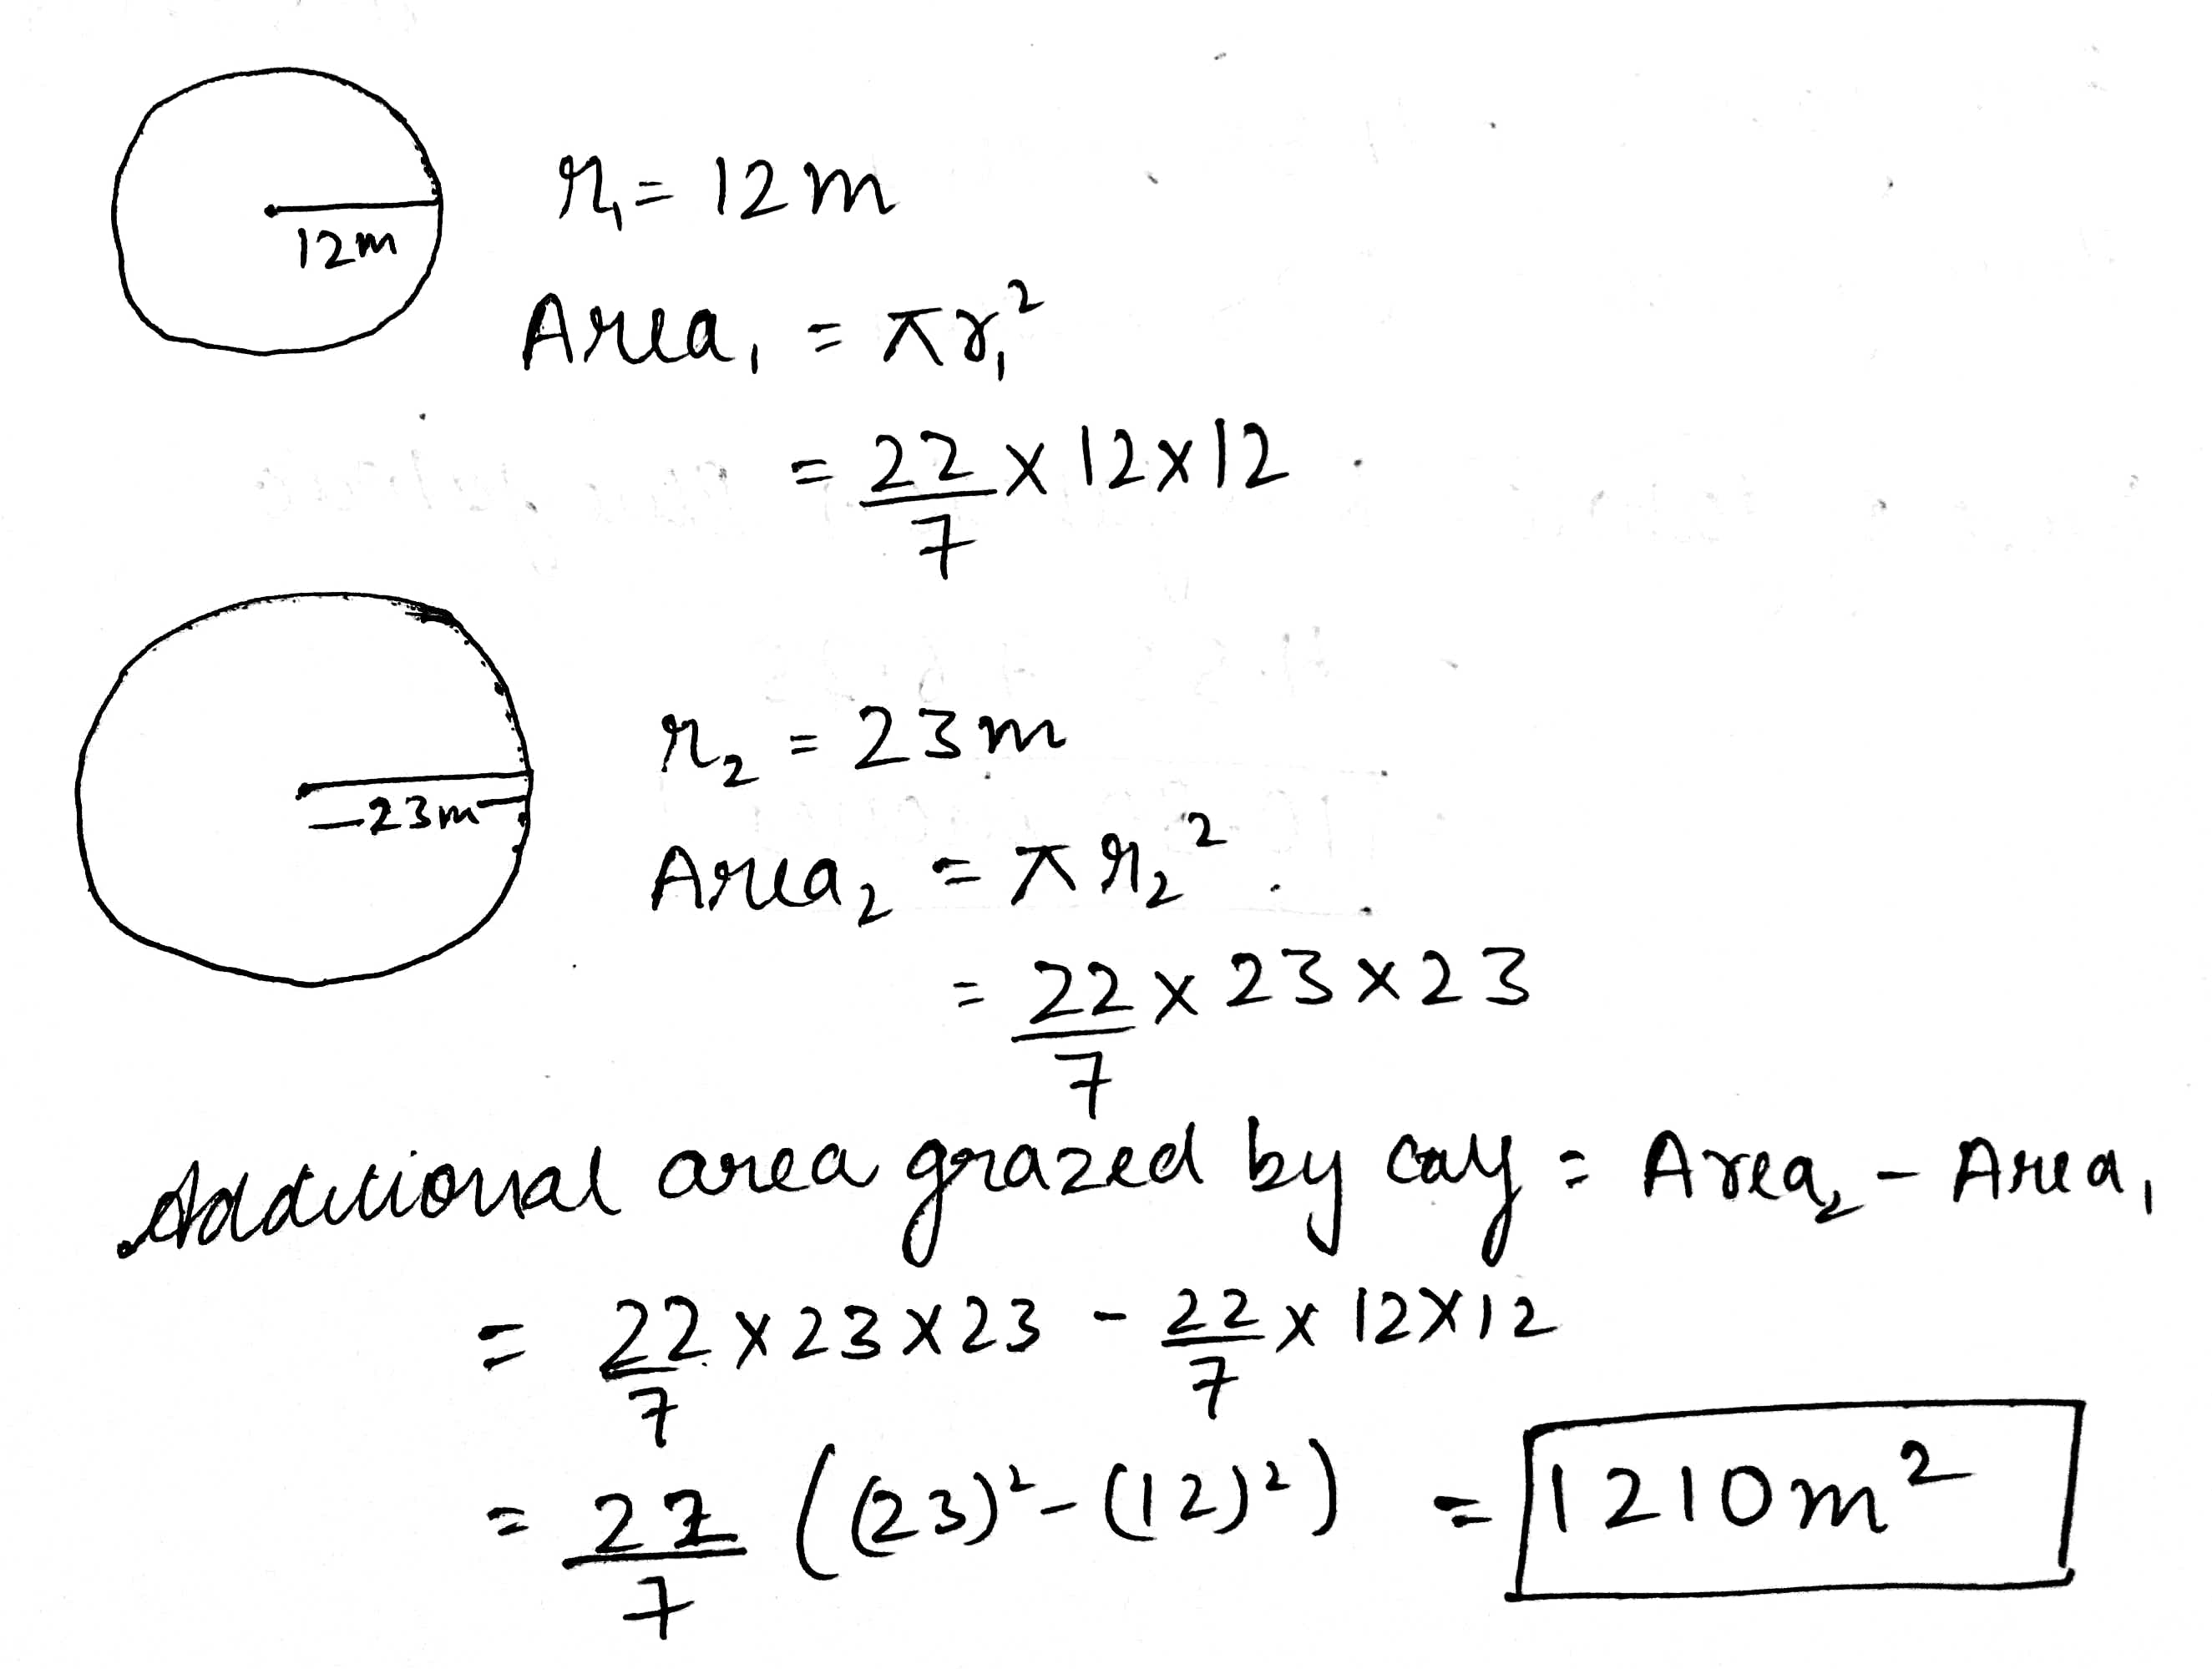 12m
r₁ = 12m
Area₁ = πr₁²
= 22/7 x 12x12
23m
r₂ = 23m
Area₂ = πr₂²
= 22/7 x 23x23
Additional area grazed by cay = Area₂ - Area₁
= 22/7 x 23x23 - 22/7 x 12x12
= 22/7 ((23)² - (12)²) = 1210m²